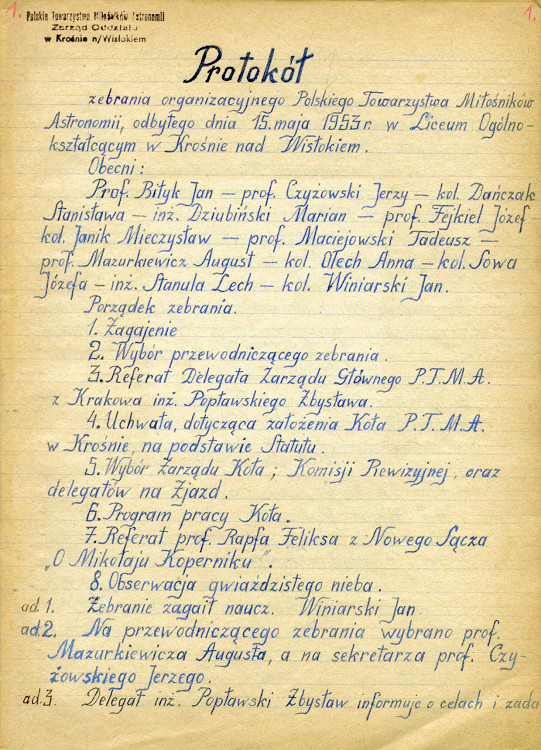 1. Polskie Towarzystwo Miłośników Astronomii 1.
Zarząd Oddziału
w Krośnie n/Wisłokiem
Protokół
zebrania organizacyjnego Polskiego Towarzystwa Miłośników
Astronomii, odbytego dnia 15. maja 1953 r. w Liceum Ogólno-
kształcącym w Krośnie nad Wisłokiem.
Obecni:
Prof. Biłyk Jan — prof. Czyżowski Jerzy — kol. Dańczak
Stanisława — inż. Dziubiński Marian — prof. Fejkiel Józef —
kol. Janik Mieczysław — prof. Maciejowski Tadeusz —
prof. Mazurkiewicz August — kol. Olech Anna — kol. Sowa
Józefa — inż. Stanula Lech — kol. Winiarski Jan.
Porządek zebrania.
1. Zagajenie
2. Wybór przewodniczącego zebrania.
3. Referat Delegata Zarządu Głównego P.T.M.A.
z Krakowa inż. Popławskiego Zbysława.
4. Uchwała, dotycząca założenia Koła P.T.M.A.
w Krośnie, na podstawie Statutu.
5. Wybór Zarządu Koła; Komisji Rewizyjnej, oraz
delegatów na Zjazd.
6. Program pracy Koła.
7. Referat prof. Rapfa Feliksa z Nowego Sącza
„O Mikołaju Koperniku".
8. Obserwacja gwiaździstego nieba.
ad 1. Zebranie zagaił naucz. Winiarski Jan
ad 2. Na przewodniczącego zebrania wybrano prof.
Mazurkiewicza Augusta, a na sekretarza prof. Czy-
żowskiego Jerzego.
ad 3. Delegat inż. Popławski Zbysław informuje o celach i zada